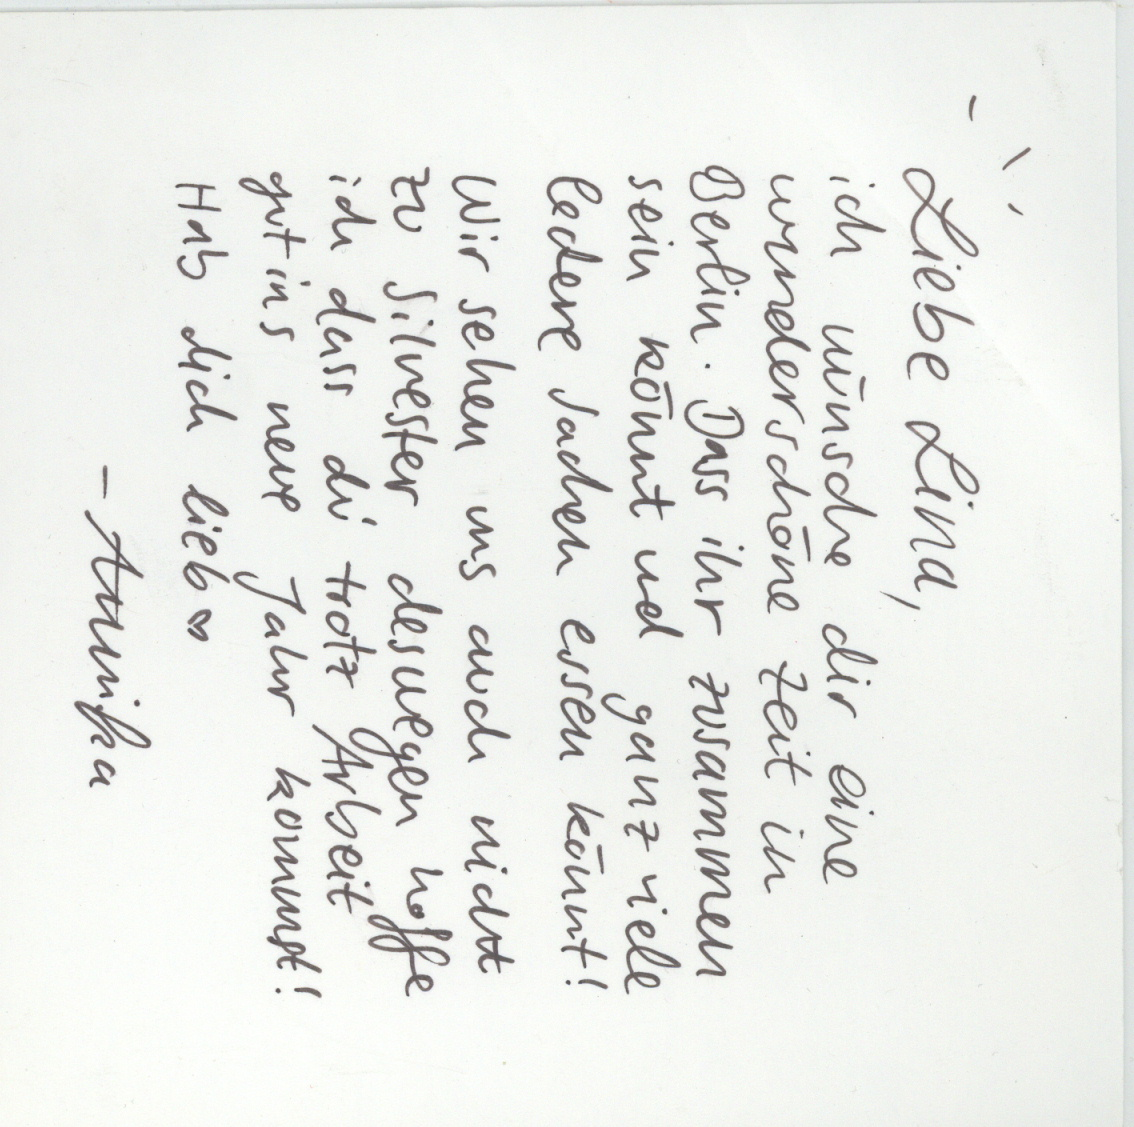 Liebe Lina,
ich wünsche dir eine
wunderschöne Zeit in
Berlin. Dass ihr zusammen
sein könnt und ganz viele
leckere Sachen essen könnt!
Wir sehen uns auch nicht
zu Silvester deswegen hoffe
ich dass du trotz Arbeit
gut ins neue Jahr kommst!
Hab dich lieb ♡
- Annika